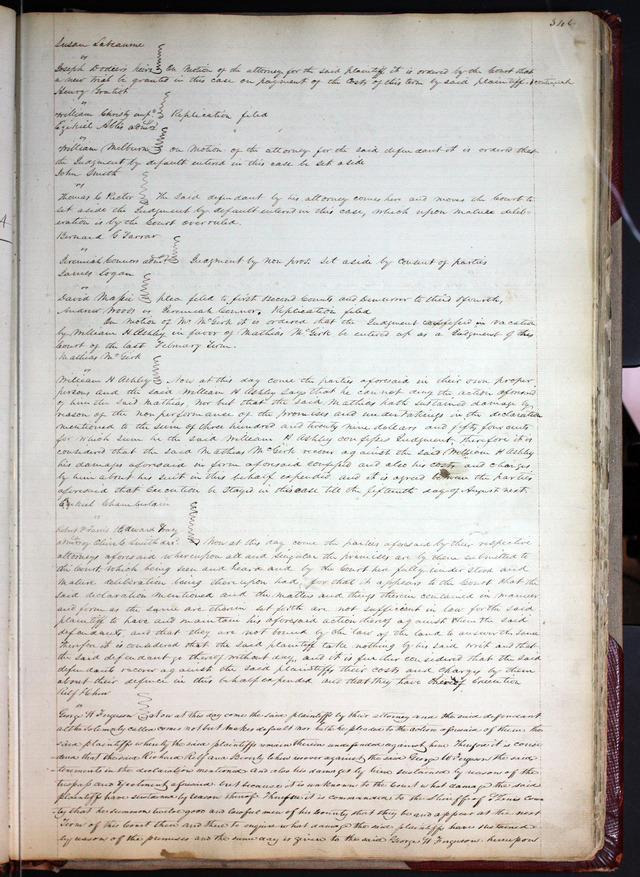 346
Susan Labeaume
vs
Joseph Dodiers heirs On Motion of the attorney for the said plaintiff it is ordered by the Court that
a new trial be granted in this case on payment of the Costs of this term by said plaintiff
Henry
vs
William Christy Replication filed
Ezekiel Ables
vs
William Milburn on Motion of the attorney for the said defendant it is ordered that
the Judgment by default entered in this case be set aside
John Smith
vs
Thomas C Rector The said defendant by his attorney comes here and moves the Court to
set aside the Judgment by default entered in this case, which upon mature delib-
eration is by the Court overruled
Bernard G Farrar
vs
Jeremiah Connors Judgment by non pros. set aside by consent of parties
James Logan
vs
David Massie plea filed to first second Counts and Demurrer to third & fourth,
Andrew Woods vs Jeremiah Connor, Replication filed
On Motion of Mr McGirk it is ordered that the Judgment confessed in vacation
by William H Ashley in favor of Mathias McGirk be entered up as a Judgment of this
Court of the last February Term.
Mathias McGirk
vs
William H Ashley Now at this day come the parties aforesaid in their own proper
persons and the said William H Ashley says that he can not deny the action aforesaid
of him the said Mathias Nor but that the said Mathias hath sustained damage by
reason of the non performance of the promises and undertakings in the declaration
mentioned to the sum of three hundred and twenty nine dollars and fifty four cents
for which sum he the said William H Ashley confesses Judgment, Therefore it is
considered that the said Mathias McGirk recover against the said William H Ashley
his damages aforesaid in form aforesaid confessed and also his costs and charges
by him about his suit in this behalf expended and it is agreed between the parties
aforesaid that execution be stayed in this case till the fifteenth day of August next.
Ezekiel Chamberlain
vs
Robert & Francis & Edward Tracy
Now at this day come the parties aforesaid by their respective
attorneys aforesaid whereupon all and singular the premises are by them submitted to
the Court, which being seen and heard and by the Court here fully understood and
mature deliberation being there upon had, for that it appears to the Court that the
said declaration mentioned and the matters and things therein contained in manner
and form as the same are therein set forth are not sufficient in law for the said
plaintiff to have and maintain his aforesaid action thereof against them the said
defendants, and that they are not bound by the law of the land to answer the same
Therefore it is considered that the said plaintiff take nothing by his said writ and that
the said defendant go thereof without day, and it is further considered that the said
defendants recover against the said plaintiff their costs and charges by them
about their defence in this behalf expended and that they have thereof Execution
Relf & Chew
vs
George H Ferguson Now at this day come the said plaintiffs by their attorney and the said defendant
altho solemnly called comes not but makes default nor hath he pleaded to the action aforesaid of them the
said plaintiffs whereby the said plaintiffs remain therein undefended against him Therefore it is consi-
dered that the said Richard Relf and Beverly Chew recover against the said George H Ferguson the said
tenements in the declaration mentioned and also his damages by him sustained by reason of the
trespass and Ejectment aforesaid but because it is unknown to the Court what damage the said
plaintiffs have sustained by reason thereof Therefore it is commanded to the Sheriff of St Louis Coun
ty that he summon twelve good and lawful men of his County that they be and appear at the next
Term of this Court then and there to enquire what damage the said plaintiffs have sustained
by reason of the premises and the same day is given to the said George H Ferguson hereupon